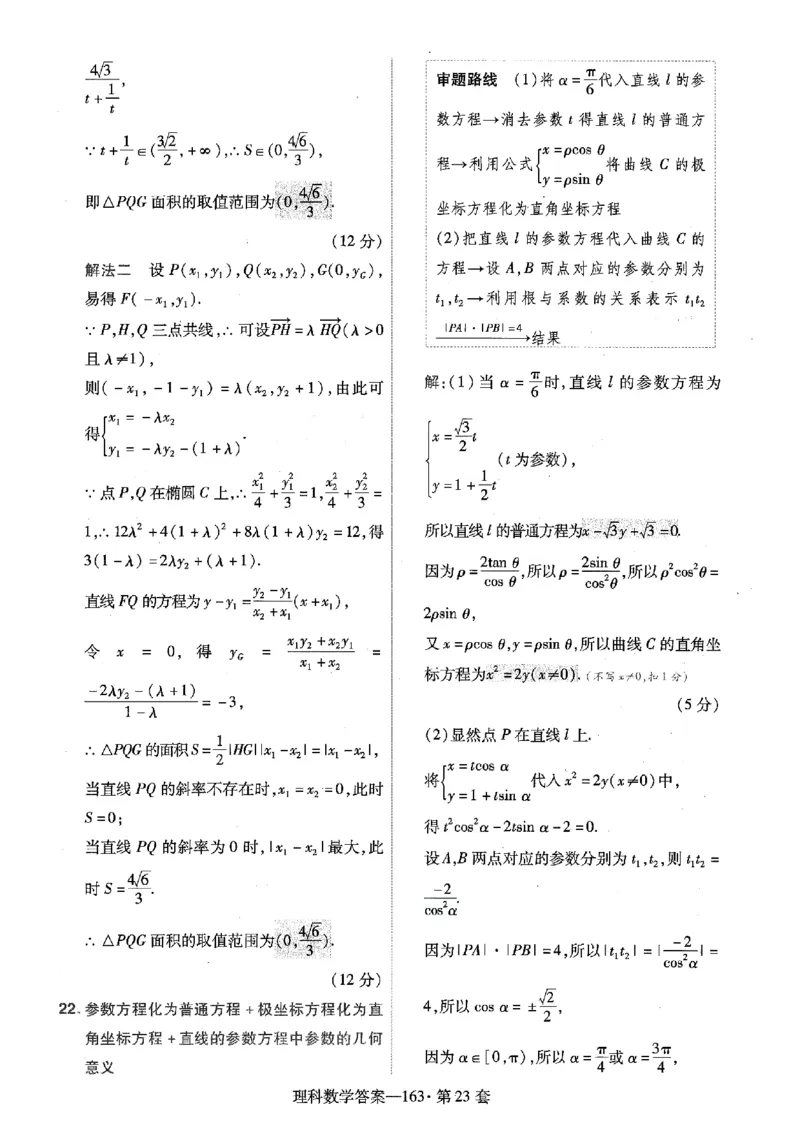 4√3/(t+1/t),
∵t+1/t∈(3√2/2,+∞),∴S∈(0,4√6/3),
即△PQG面积的取值范围为(0,4√6/3).
(12分)
解法二 设P(x₁,y₁),Q(x₂,y₂),G(0,y_G),
易得F(-x₁,y₁).
∵P,H,Q三点共线,∴可设PH→=λHQ→(λ>0
且λ≠1),
则(-x₁,-1-y₁)=λ(x₂,y₂+1),由此可
得{x₁=-λx₂
y₁=-λy₂-(1+λ).
∵点P,Q在椭圆C上,∴x₁²/4+y₁²/3=1,x₂²/4+y₂²/3=
1,∴12λ²+4(1+λ)²+8λ(1+λ)y₂=12,得
3(1-λ)=2λy₂+(λ+1).
直线FQ的方程为y-y₁=(y₂-y₁)/(x₂+x₁)(x+x₁),
令x=0,得y_G=(x₁y₂+x₂y₁)/(x₁+x₂)=
(-2λy₂-(λ+1))/(1-λ)=-3,
∴△PQG的面积S=1/2|HG||x₁-x₂|=|x₁-x₂|,
当直线PQ的斜率不存在时,x₁=x₂=0,此时
S=0;
当直线PQ的斜率为0时,|x₁-x₂|最大,此
时S=4√6/3.
∴△PQG面积的取值范围为(0,4√6/3).
(12分)
22.参数方程化为普通方程+极坐标方程化为直
角坐标方程+直线的参数方程中参数的几何
意义
审题路线 (1)将α=π/6代入直线l的参
数方程→消去参数t得直线l的普通方
程→利用公式{x=ρcos θ
y=ρsin θ将曲线C的极
坐标方程化为直角坐标方程
(2)把直线l的参数方程代入曲线C的
方程→设A,B两点对应的参数分别为
t₁,t₂→利用根与系数的关系表示t₁t₂
|PA|·|PB|=4→结果
解:(1)当α=π/6时,直线l的参数方程为
{x=√3/2t
y=1+1/2t
(t为参数),
所以直线l的普通方程为x-√3y+√3=0.
因为ρ=2tan θ/cos θ,所以ρ=2sin θ/cos²θ,所以ρ²cos²θ=
2ρsin θ,
又x=ρcos θ,y=ρsin θ,所以曲线C的直角坐
标方程为x²=2y(x≠0).(不写x≠0,扣1分)
(5分)
(2)显然点P在直线l上.
将{x=tcos α
y=1+tsin α代入x²=2y(x≠0)中,
得t²cos²α-2tsin α-2=0.
设A,B两点对应的参数分别为t₁,t₂,则t₁t₂=
-2/cos²α.
因为|PA|·|PB|=4,所以|t₁t₂|=|-2/cos²α|=
4,所以cos α=±√2/2,
因为α∈[0,π),所以α=π/4或α=3π/4,
理科数学答案—163·第23套